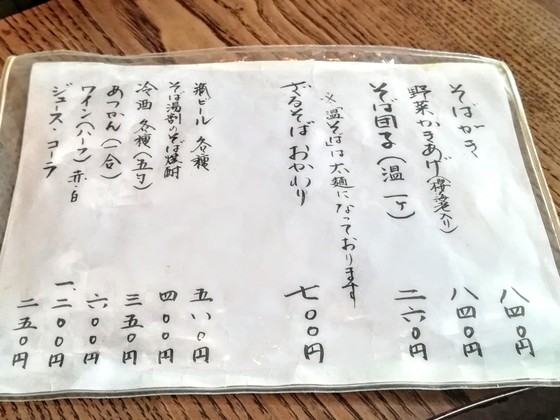 そばがき 八四〇円
野菜かきあげ(桜海老入り) 八四〇円
そば団子(温 一ケ) 二六〇円
※「温そば」は太麺になっております
ざるそば おかわり 七〇〇円
瓶ビール 各種 五八〇円
そば湯割のそば焼酎 四〇〇円
冷酒 各種(五勺) 三五〇円
あつかん(一合) 六〇〇円
ワイン(ハーフ) 赤・白 一、二〇〇円
ジュース・コーラ 二五〇円